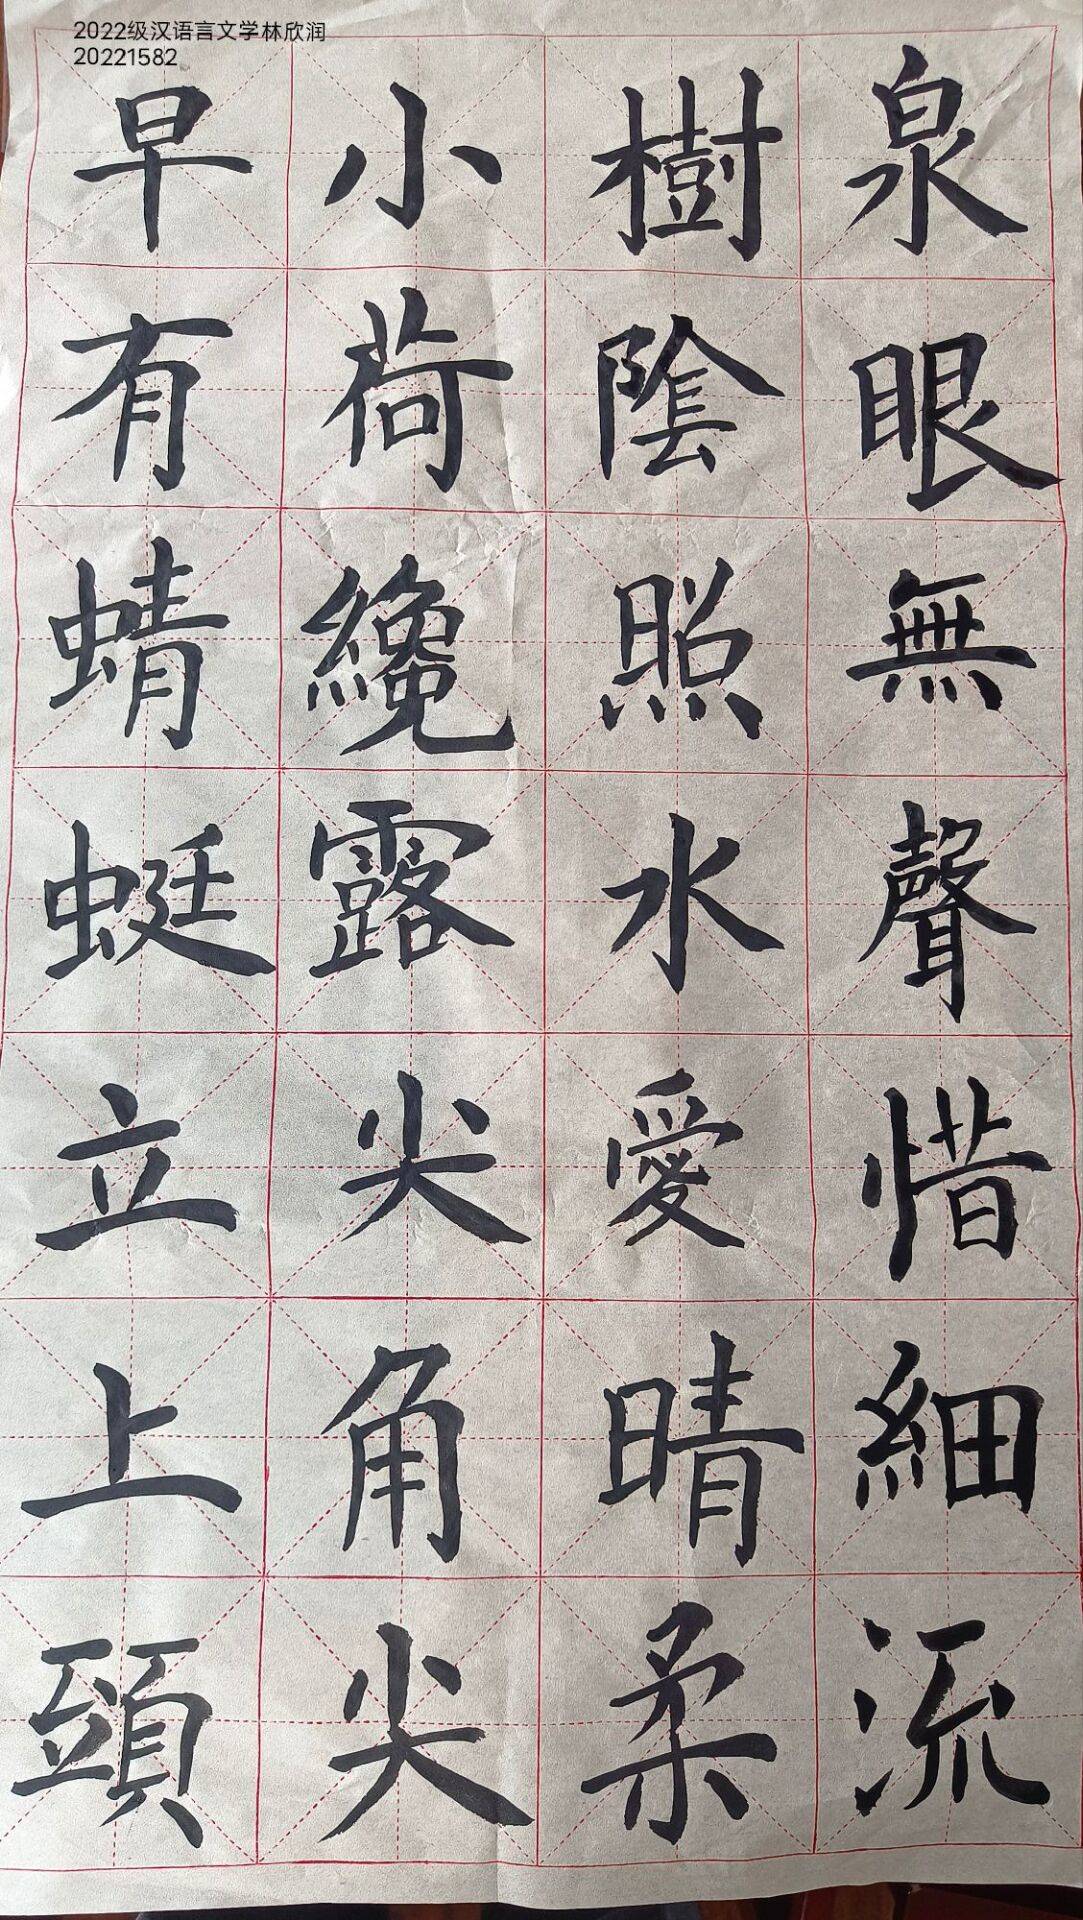 2022级汉语言文学林欣润
20221582
泉眼無聲惜細流
樹陰照水愛晴柔
小荷纔露尖角尖
早有蜻蜓立上頭